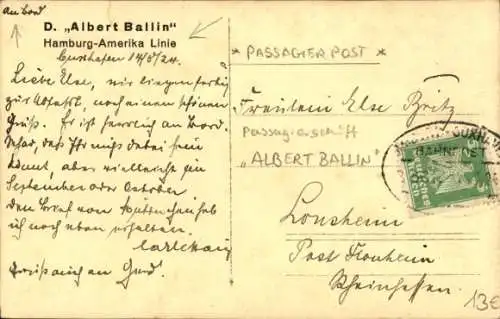 an Bord
D. „Albert Ballin"
Hamburg-Amerika Linie
Cuxhafen 14/8/24.
Liebe Else, wir liegen fertig
zur Abfahrt, noch einen schönen
Gruß. Es ist herrlich an Bord.
Schad, daß Ihr nicht dabei sein
könnt, aber vielleicht im
September oder Oktober
den Brief von hab
ich noch eben erhalten.
Gruß auch an Gend.
* PASSAGIER POST *
Fräulein Else Britz
Passagierschiff
"ALBERT BALLIN"
Lonsheim
Post Flonheim
Rheinhessen.
13€